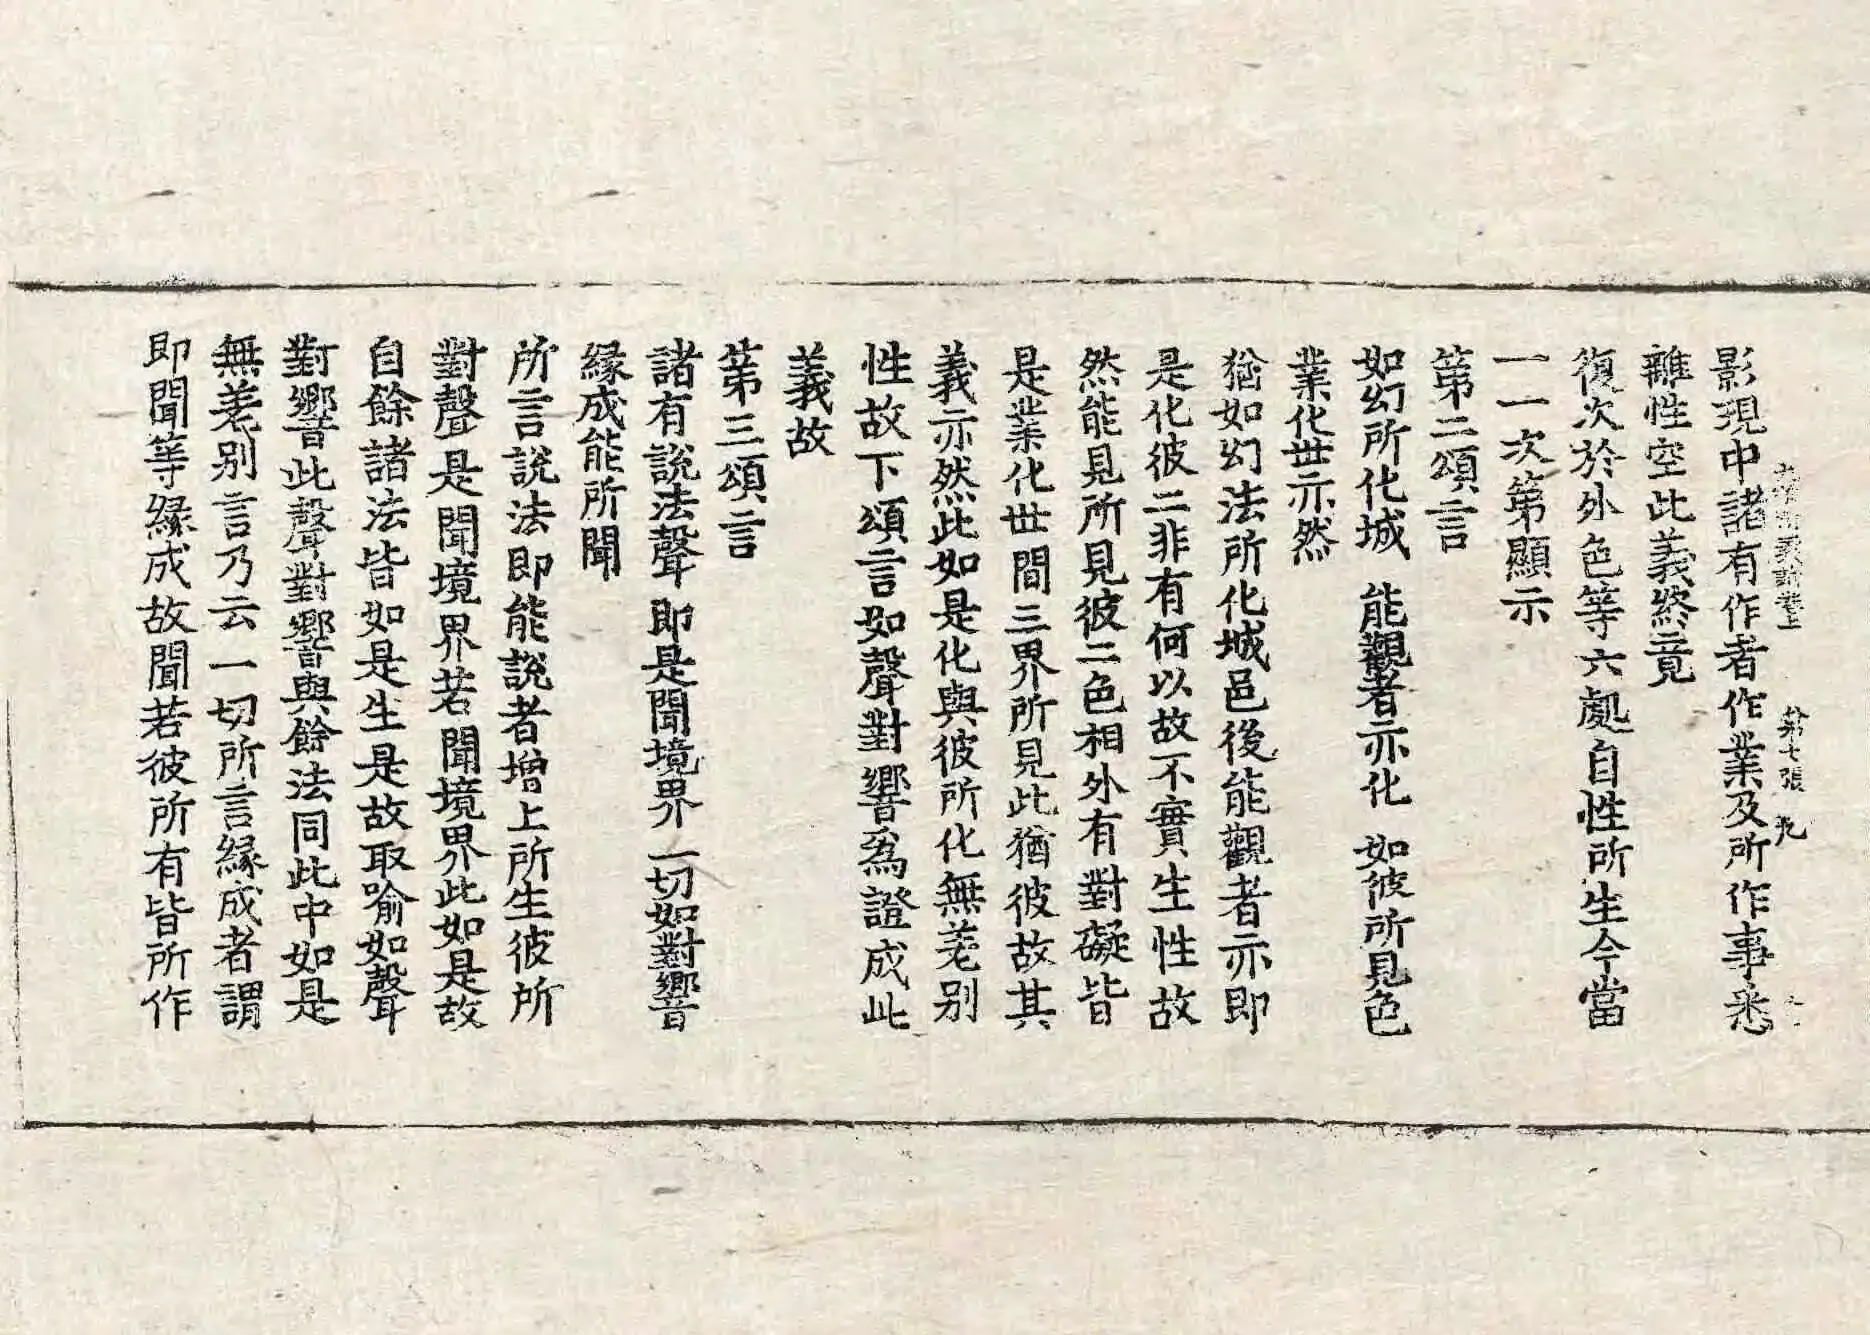 影現中諸有作者作業及所作事悉
離性空此義終竟
復次於外色等六處自性所生今當
一一次第顯示
第二頌言
如幻所化城　能觀者亦化　如彼所見色
業化世亦然
猶如幻法所化城邑後能觀者亦即
是化彼二非有何以故不實生性故
然能見所見彼二色相外有對礙皆
是業化世間三界所見此猶彼故其
義亦然此如是化與彼所化無差别
性故下頌言如聲對響為證成此
義故
第三頌言
諸有說法聲　即是聞境界　一切如對響
緣成能所聞
所言說法即能說者增上所生彼所
對聲是聞境界若聞境界此如是故
自餘諸法皆如是生是故取喻如聲
對響此聲對響與餘法同此中如是
無差别言乃云一切所言緣成者謂
即聞等緣成故聞若彼所有皆所作